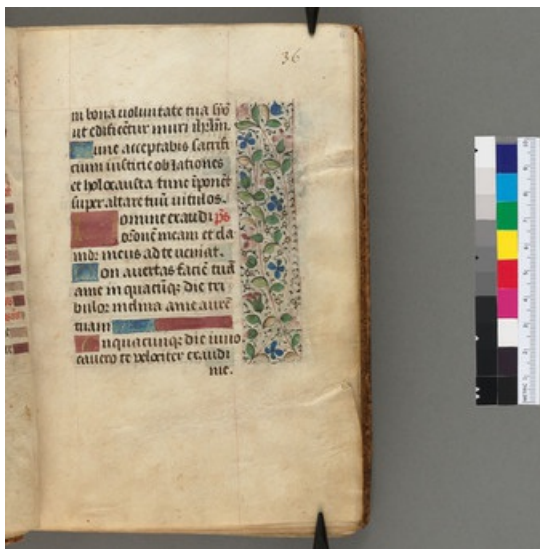 36
in bona voluntate tua syõ
ut edificẽtur muri ihrl̃m.
Tunc acceptabis sacrifi
cium iusticie oblationes
et holocausta tunc ĩponẽt
super altare tuũ vitulos.
Domine exaudi p̃s
or̃onẽ meam et cla
mor meus ad te veniat.
Non avertas faciẽ tuã
a me in quacũq; die tri
bulor inclina a me aurẽ
tuam
In quacunq; die invo
cavero te velociter exaudi
me.